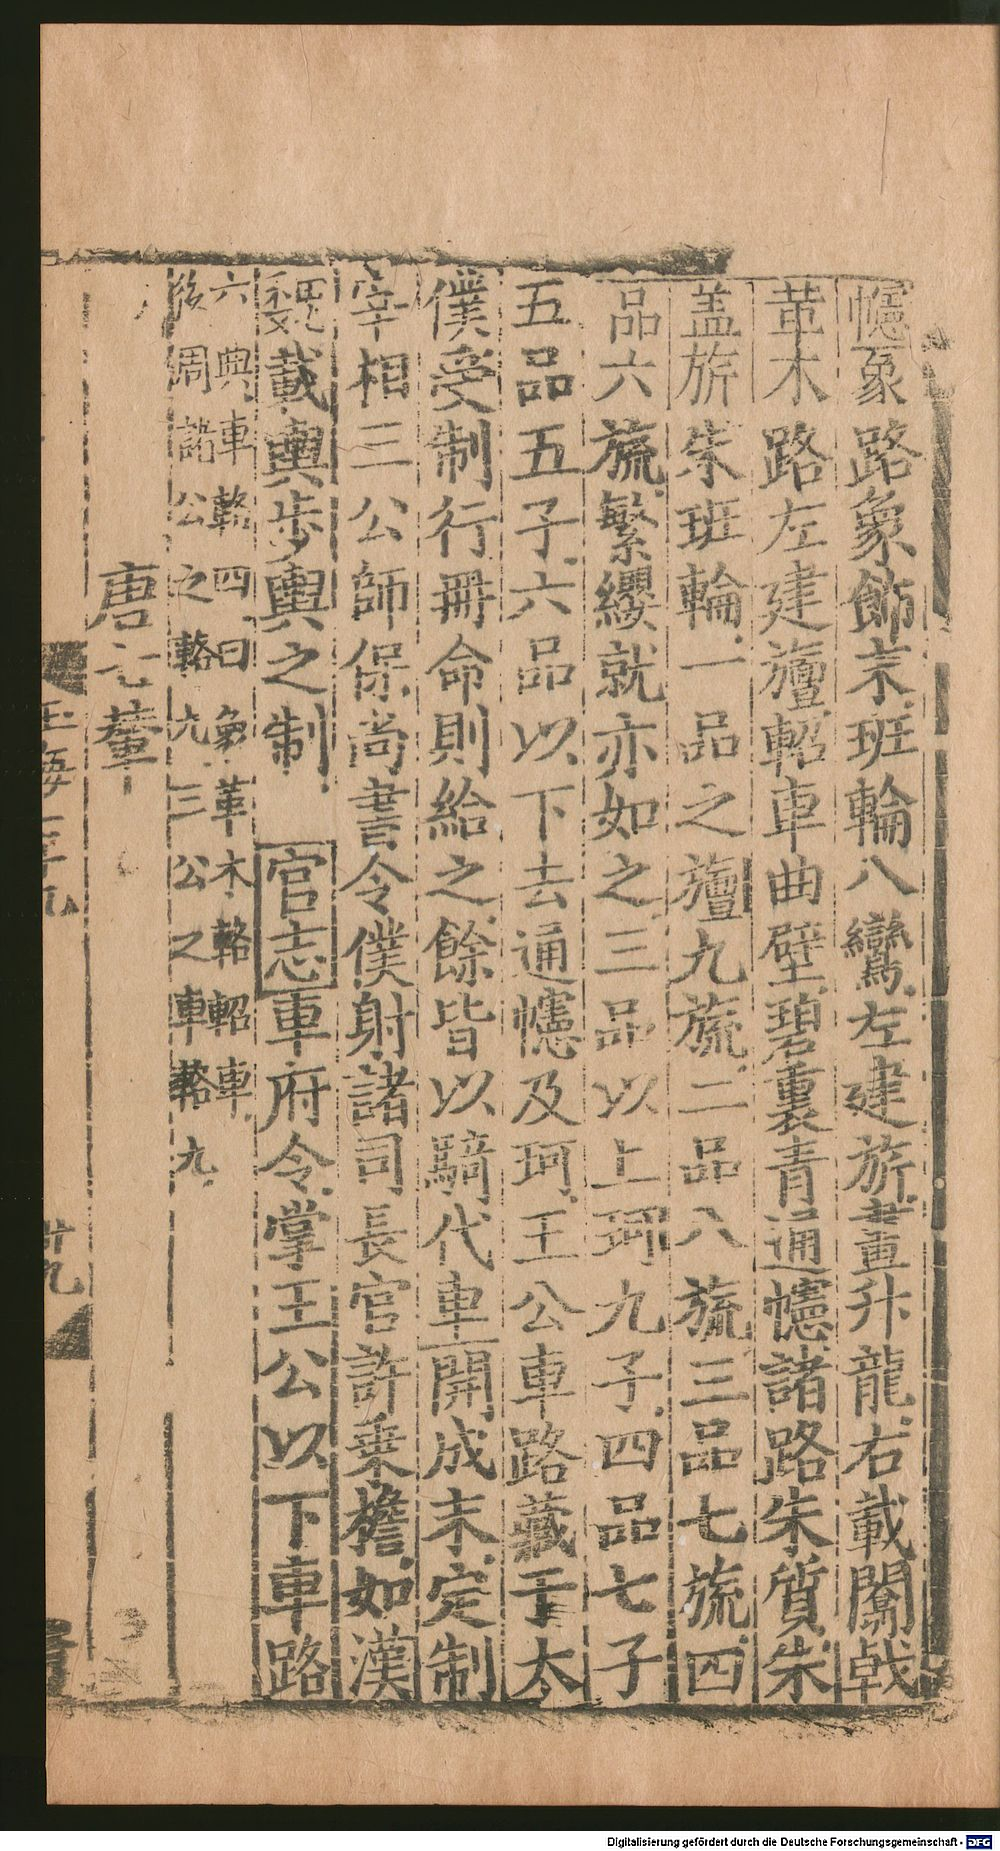 幰象路象飾末班輪八鸞左建旂畫升龍右載闟戟
革木路左建旜軺車曲壁碧裏青通幰諸路朱質朱
盖旂朱班輪一品之旜九旒二品八旒三品七旒四
品六旒繁纓就亦如之三品以上珂九子四品七子
五品五子六品以下去通幰及珂王公車路藏于太
僕受制行冊命則給之餘皆以騎代車開成末定制
宰相三公師保尚書令僕射諸司長官許乗檐如漢
魏載輿歩輿之制 官志車府令掌王公以下車路
六典車輅四曰象革木輅軺車
後周諸公之輅九三公之車輅九
唐七輦
玉海
Digitalisierung gefördert durch die Deutsche Forschungsgemeinschaft - DFG